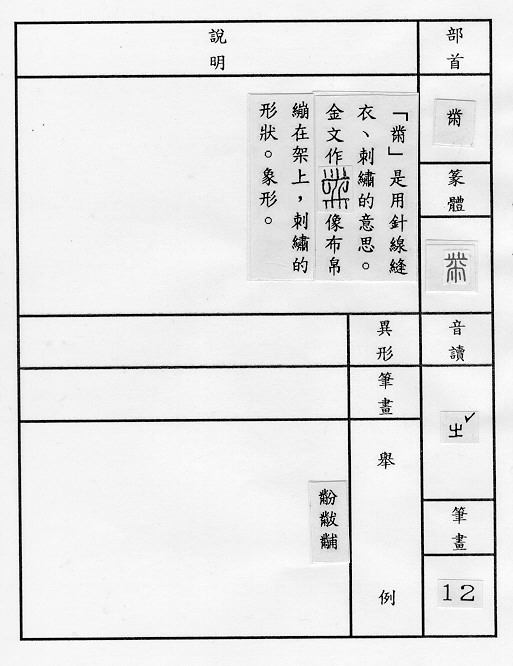 部首
黹
篆體
音讀
ㄓˇ
筆畫
12
說明
「黹」是用針線縫
衣、刺繡的意思。
金文作像布帛
繃在架上，刺繡的
形狀。象形。
異形
筆畫
舉例
黺黻黼